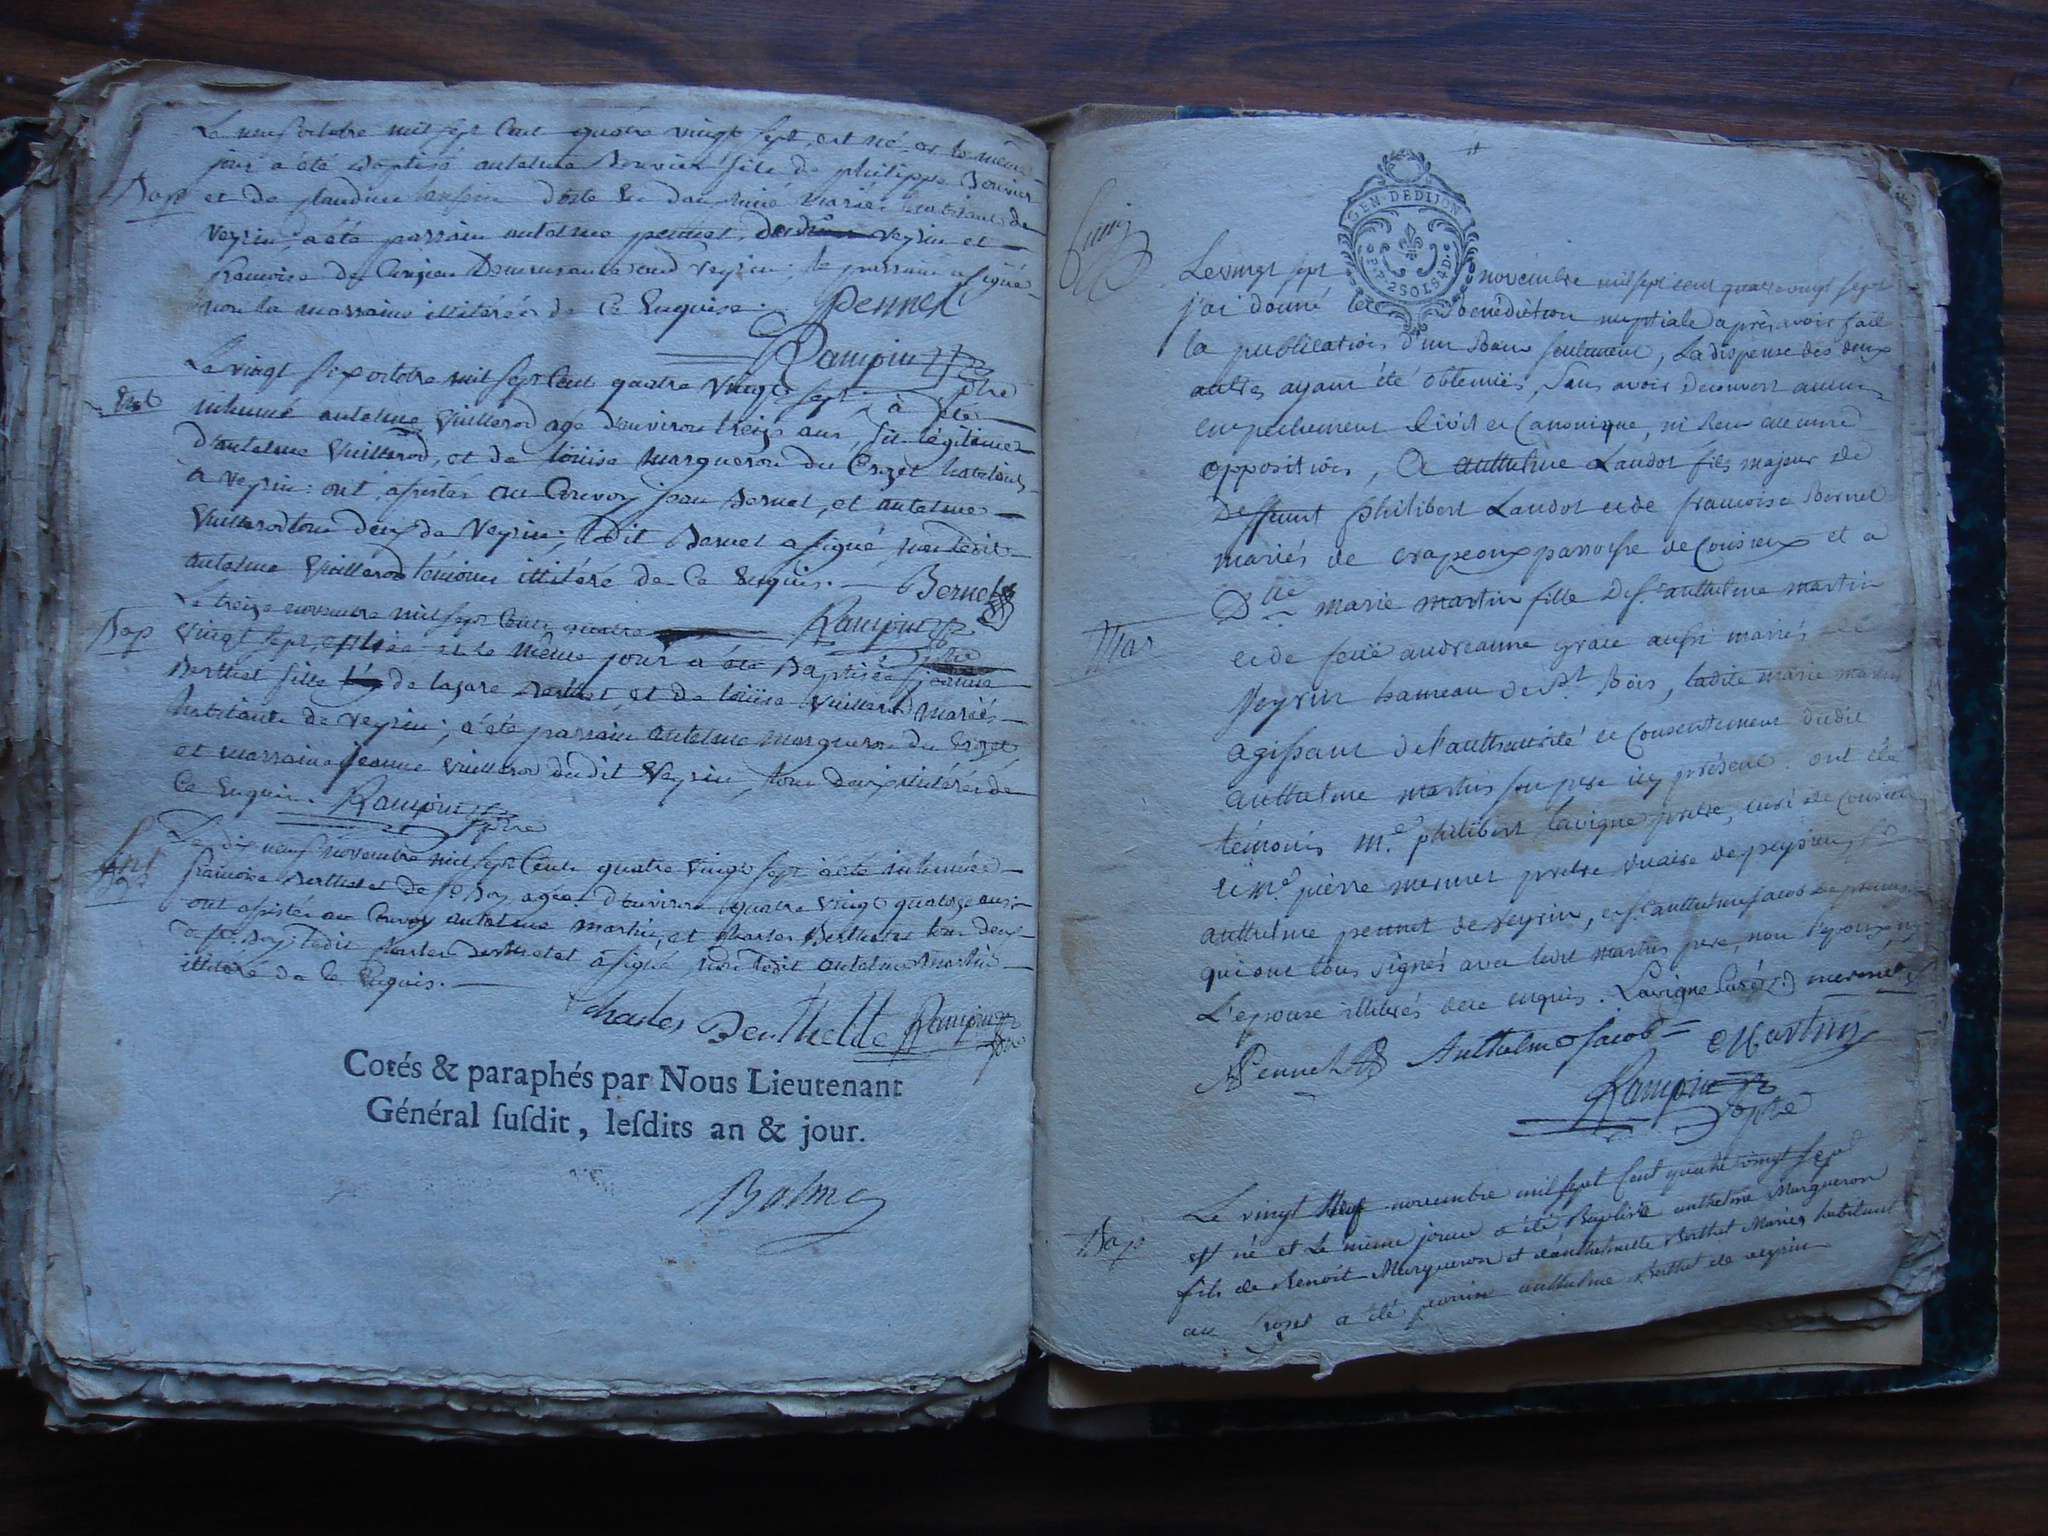 Le neuf octobre mil sept Cent quatre vingt sept, est né et le même
jour a été Baptisé antelme Bouvier fils de philippe Bouvier
Bap
et de Claudine mariés habitants de
veyrin, a été parrain antelme pennet veyrin et
francoise de veyrin; le parrain a signé
non la marraine illitérée de Ce Enquise. Pennet
Rampin ptre
Le vingt six octobre mil sept Cent quatre vingt sept, à été
Ent
inhumé antelme Vuillerod agé d'environ treize ans, fils légitime
d'antelme Vuillerod, et de loüise margueron du Crozet habitants
à veyrin: ont assistés au Convoy jean Bernet, et antelme
Vuillerod tous deux de Veyrin; ledit Bernet a signé non ledit
antelme Vuillerod témoin illitéré de Ce Enquis. Bernet
Rampin ptre
Le treize novembre mil sept Cent quatre
Bap
vingt sept, est née et le même jour a été Baptisée jeanne
Berthet fille de lazare Berthet, et de loüise Vuillerod mariés
habitants de veyrin; a été parrain antelme margueron du Crozet
et marraine jeanne Vuillerod dudit Veyrin, tous deux illitérés de
Ce Enquis. Rampin ptre
Le dix neuf novembre mil sept Cent quatre vingt sept à été inhumée
Ent
francoise Berthet de St Boy agée d'environ quatre vingt quatorze ans:
ont assistés au Convoy antelme martin, et charles Berthelet tous deux
de St Boy; ledit charles Berthelet à signé non ledit antelme martin
illitéré de Ce Enquis.
charles Berthelle Rampin ptre
Cotés & paraphés par Nous Lieutenant
Général ſuſdit, leſdits an & jour.
Balme
GEN. DE DIJON
2 SOLS 4 D.
Le vingt sept novembre mil sept cent quatre vingt sept
j'ai donné la Bénédiction nuptiale après avoir fait
la publication d'un Banc seulement, la dispense des deux
autres ayant été obtenües, sans avoir decouvert aucun
empechement Civil et Canonique, ni Reçu aucune
opposition, a anthelme Landot fils majeur de
Deffunt philibert Landot et de francoise Bornel
mariés de crapeoux parroisse de Cousieux et a
Dlle marie martin fille de Sr anthelme martin
Mar
et de feüe andreanne grace aussi mariés de
Veyrin hameau de St Bois, ladite marie martin
agissant de l'authaurité et Consentement dudit
anthelme martin son pere icy présent. ont été
témoins Me philibert Lavigne pretre, curé de Cousieu
et Me pierre mermet pretre vicaire de peyrieu, Sr
anthelme pennet de veyrin, et Sr anthelme jacob de
qui ont tous signés avec ledit martin pere, non l'epoux ny
L'epouse illiterés de ce enquis. Lavigne Curé mermet
Pennet Anthelme Jacob Martin
Rampin ptre
Le vingt neuf novembre mil sept Cent quatre vingt sept
Bap
est né et le même jour a été Baptisé anthelme Margueron
fils de Benoit Margueron et d'anthelmette Berthet Mariés habitant
au Crozet a été parrin anthelme Berthet de veyrin